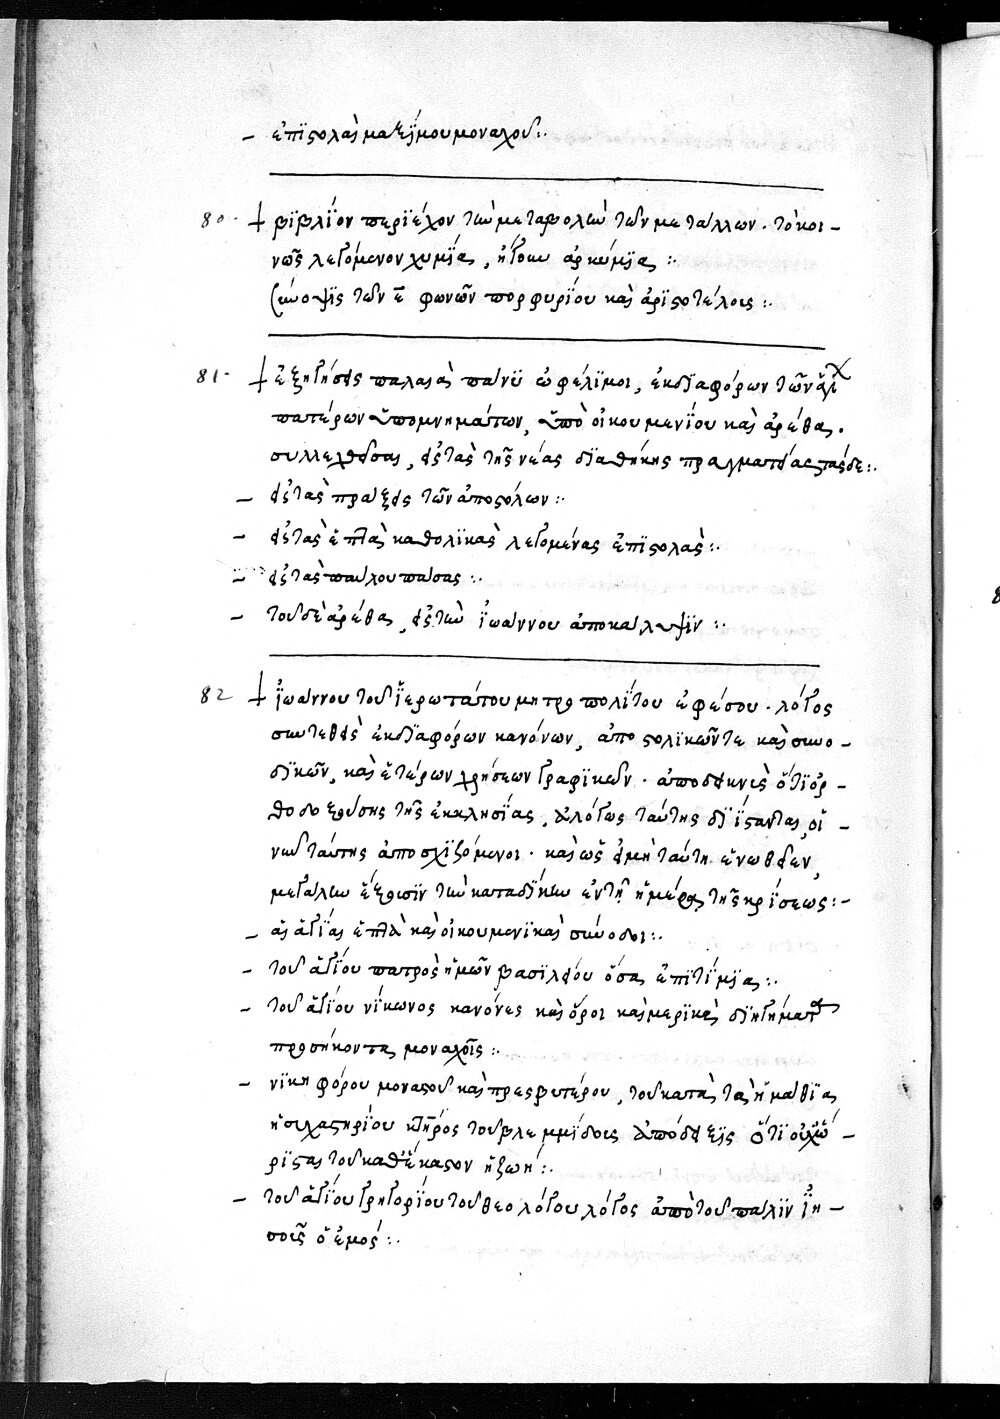 – ἐπϊστολαὶ μαξΐμου μοναχοῦ :·
80· † βϊβλΐον περϊέχον τὴν μεταβολὴν τῶν μετάλλων · τὸ κοι –
νῶς λεγόμενον χυμΐα, ἤγουν ἀρχυμΐα :·
Σύνοψϊς τῶν ε̄ φωνῶν πορφυρΐου καὶ ἀρϊστοτέλους :·
81· † ἐξηγήσεις παλαιαὶ πάνϋ ὠφέλϊμοι, ἐκ δϊαφόρων τῶν ἁγΐ
πατέρων ὑπομνημάτων, ὑπὸ οἰκουμενΐου καὶ ἀρέθα.
συλλεχθεῖσαι, εἰς τὰς τῆς νέας δϊαθήκης πραγματείας τάσδε :·
– εἰς τὰς πράξεις τῶν ἀποστόλων :·
– εἰς τὰς ἑπτὰ καθολϊκὰς λεγομένας ἐπϊστολάς :·
– εἰς τὰς παύλου πάσας :·
– τοῦ δὲ ἀρέθα, εἰς τὴν ἰωάννου ἀποκάλυψϊν :·
82 † ἰωάννου τοῦ ἱερωτάτου μητροπολΐτου ἐφέσου · λόγος
συντεθεὶς ἐκ δϊαφόρων κανόνων, ἀποστολϊκῶν τε καὶ συνο –
δϊκῶν, καὶ ἑτέρων χρήσεων γραφϊκῶν · ἀποδεικνὺς ὅτϊ ὀρ –
θοδοξούσης τῆς ἐκκλησΐας, ἀλόγως ταύτης δϊΐστανται, οἱ –
νῦν ταύτης ἀποσχϊζόμενοι · καὶ ὡς εἰ μὴ ταύτῃ ἑνωθεῖεν,
μεγάλην ἕξουσϊν τὴν καταδΐκην ἐν τῇ ἡμέρᾳ τῆς κρΐσεως :–
– αἱ ἅγΐαι ἑπτὰ καὶ οἰκουμενϊκαὶ σύνοδοι :·
– τοῦ ἁγΐου πατρὸς ἡμῶν βασϊλείου ὅσα ἐπϊτΐμϊα :·
– τοῦ ἁγΐου νΐκωνος κανόνες καὶ ὅροι καὶ μερϊκὰ δϊηγήματα
προσήκοντα μοναχοῖς :·
– νϊκηφόρου μοναχοῦ καὶ πρεσβυτέρου, τοῦ κατὰ τὰ
ἡσυχαστηρΐου τοῦ βλεμμΐδους ἀπόδειξϊς ὅτϊ οὐχ ὥ –
ρϊσται τοῦ καθ' ἕκαστον ἡ ζωή :·
– τοῦ ἁγΐου γρηγορΐου τοῦ θεολόγου λόγος ἀπὸ τοῦ πάλϊν ἰη –
σοῦς ὁ ἐμός :·